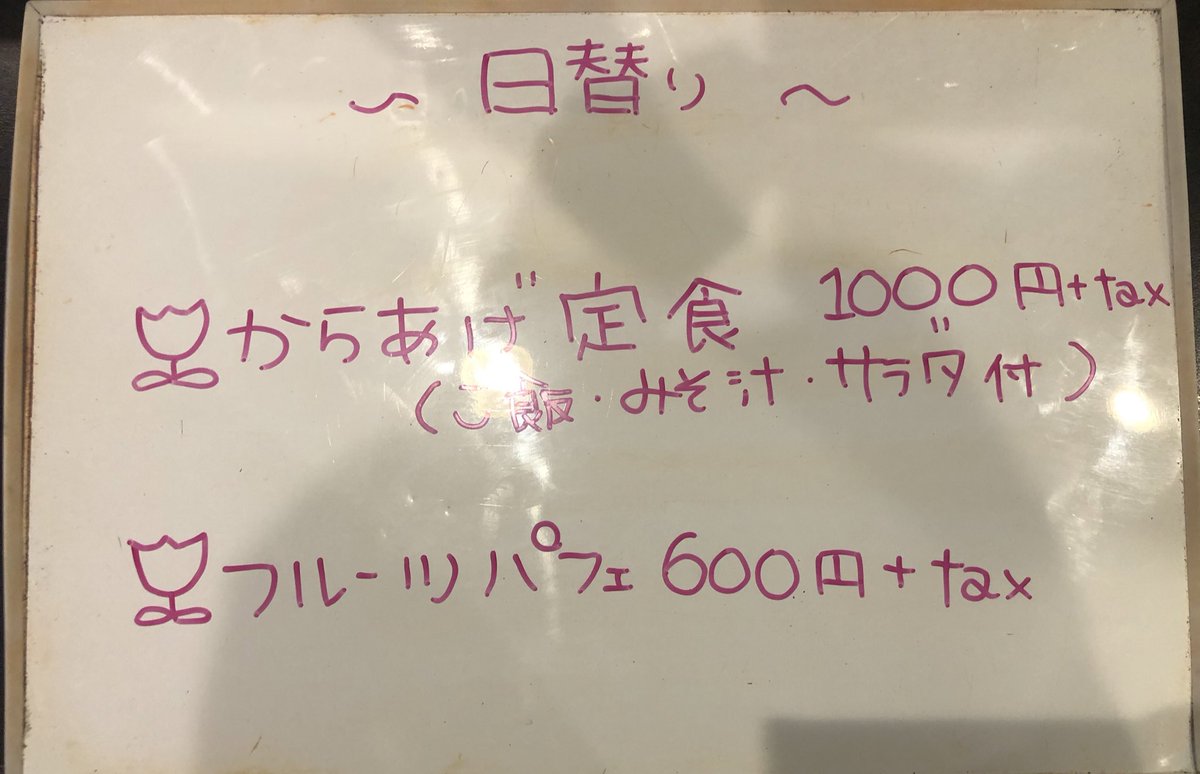 ～ 日替り ～
からあげ定食 1000円+tax
(ご飯・みそ汁・サラダ付)
フルーツパフェ 600円+tax